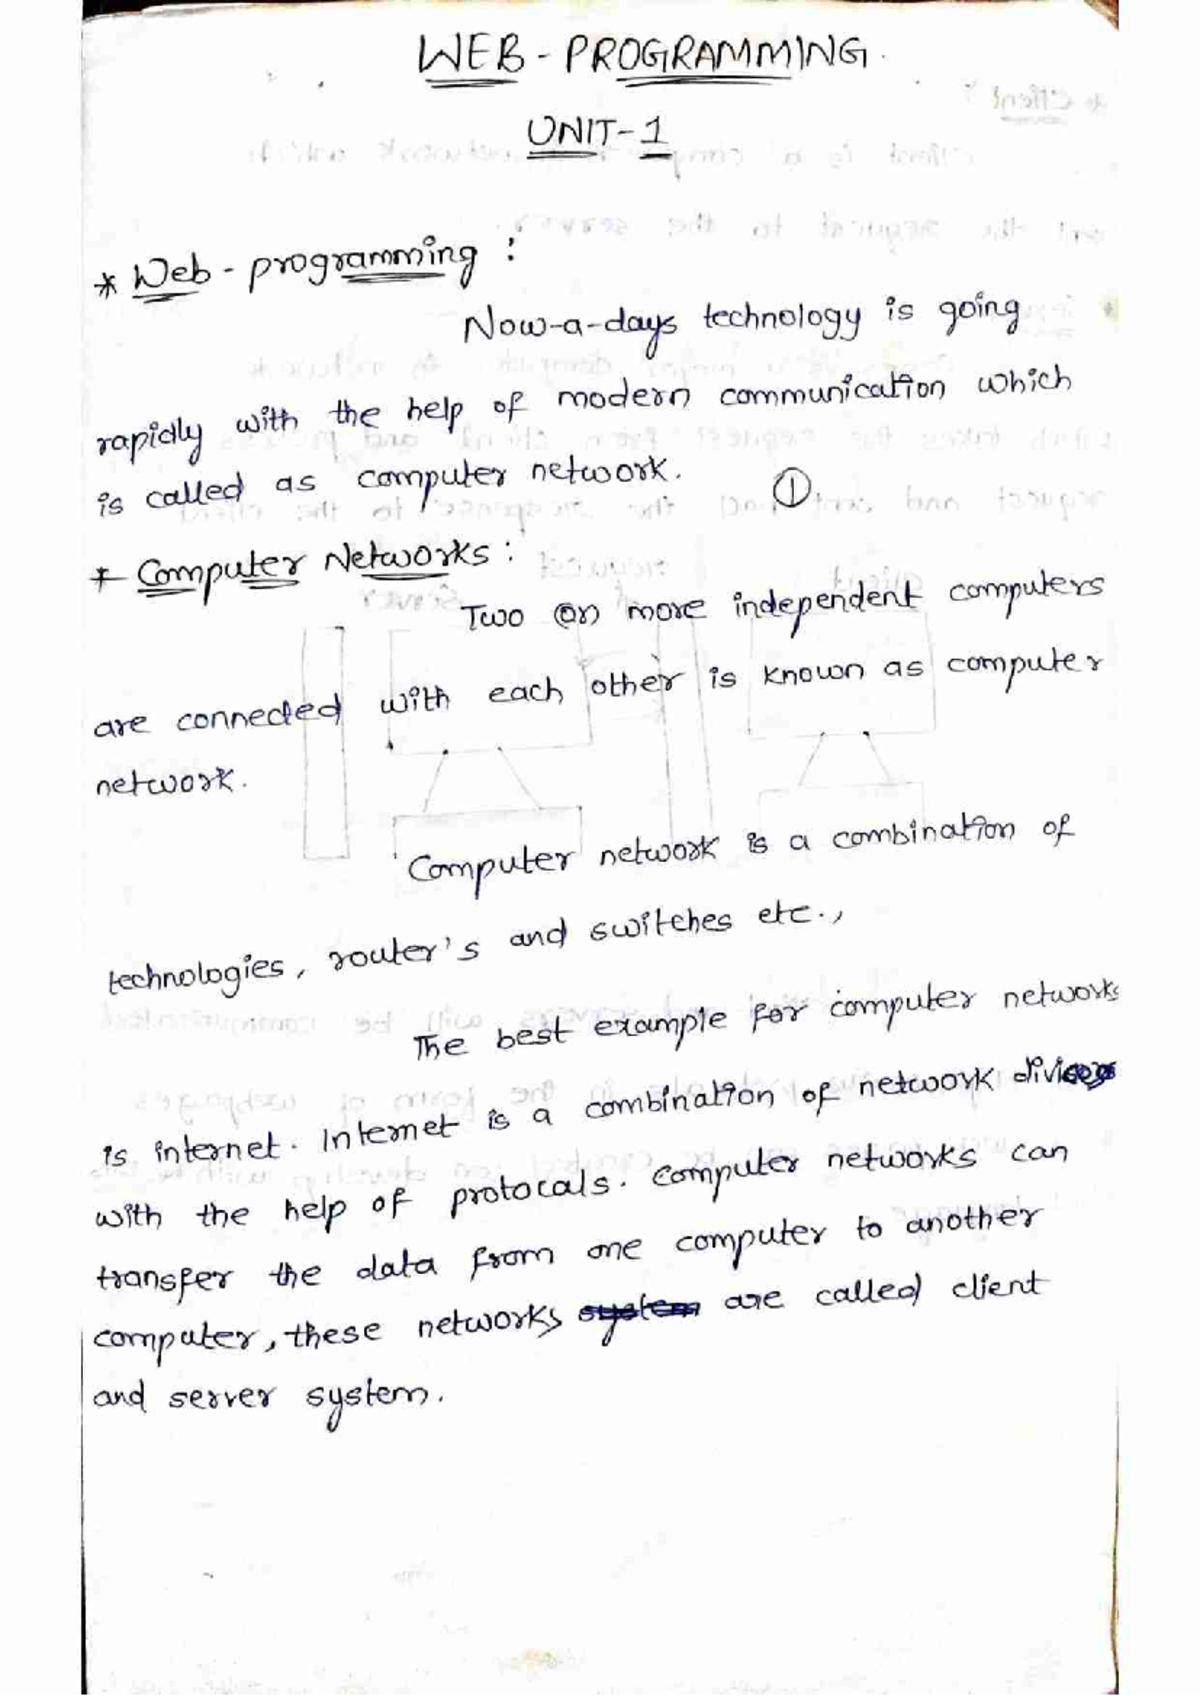 WEB - PROGRAMMING.
UNIT-1
* Web - programming :
Now-a-days technology is going
rapidly with the help of modern communication which
is called as computer network.
①
* Computer Networks :
Two (or) more independent computers
are connected with each other is known as computer
network.
Computer network is a combination of
technologies, router's and switches etc.,
The best example for computer networks
is internet. Internet is a combination of network divices
with the help of protocals. Computer networks can
transfer the data from one computer to another
computer, these networks system are called client
and server system.